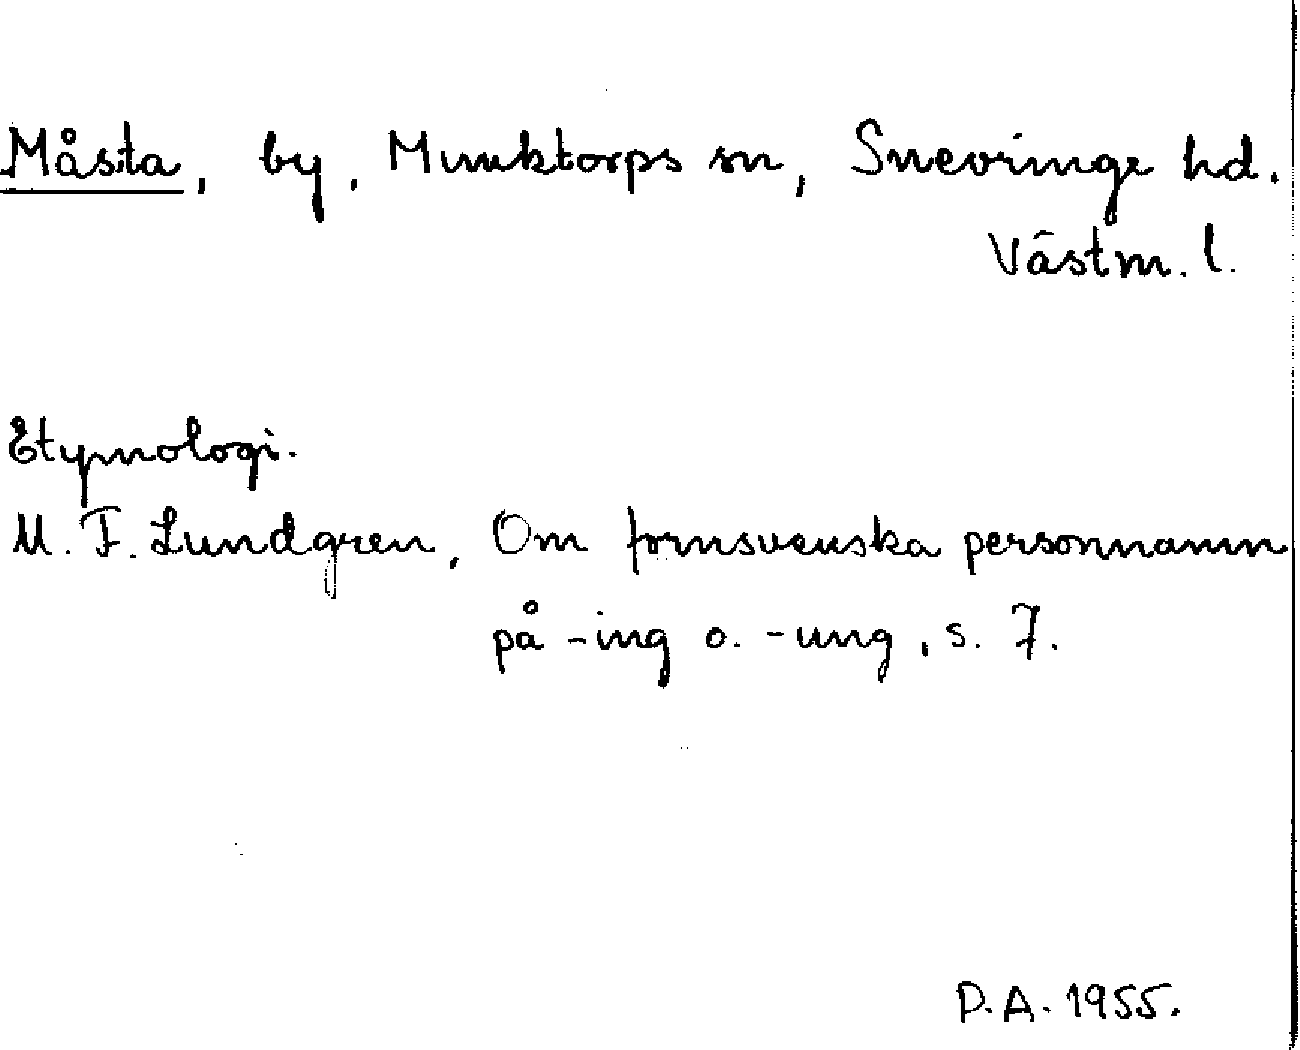 Måsta, by, Munktorps sn, Snevringe hd.
Västm. l.
Etymologi.
M. F. Lundgren, Om fornsvenska personnamn
på -ing o. -ung, s. 7.
P.A. 1955.